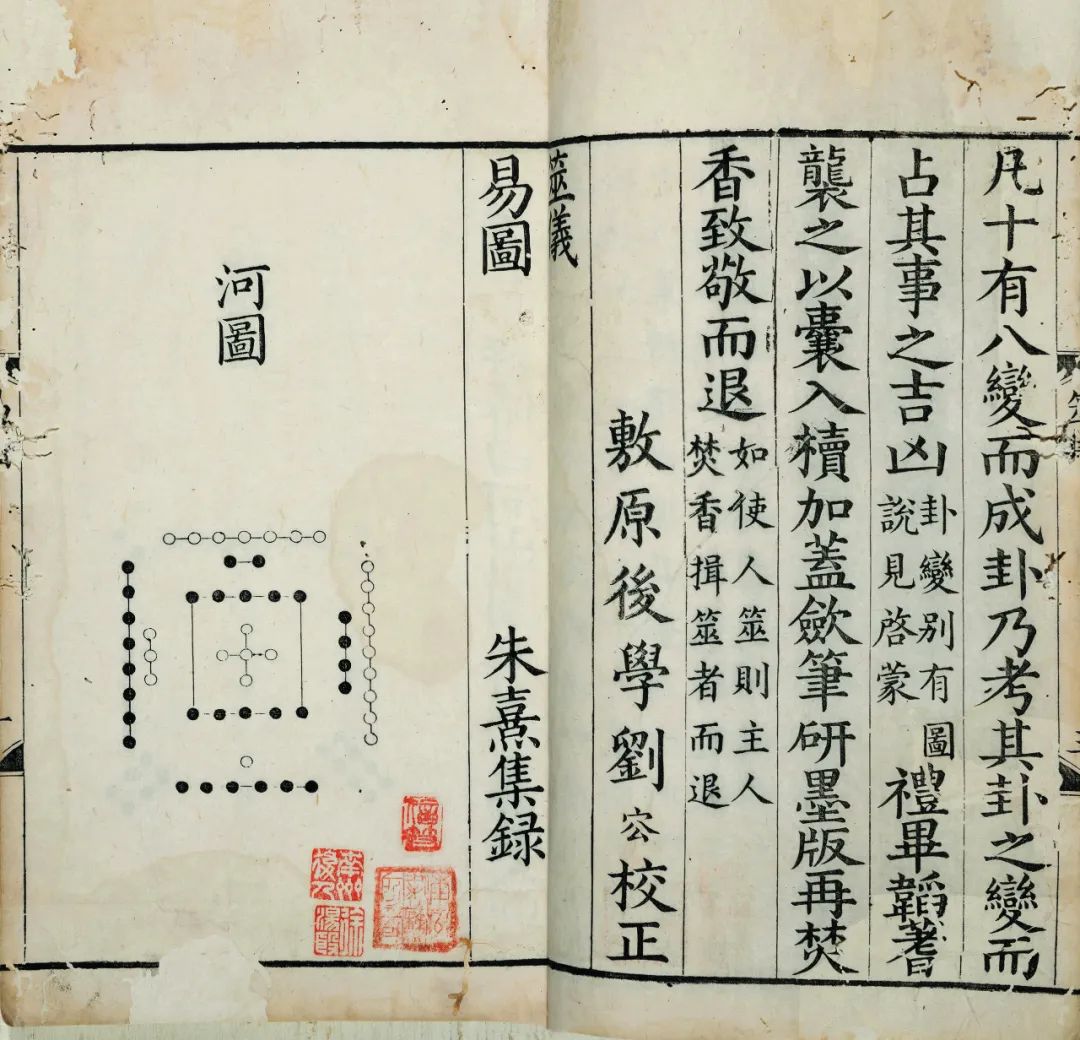 凡十有八變而成卦乃考其卦之變而
占其事之吉凶卦變別有圖說見啓蒙禮畢韜蓍
襲之以囊入櫝加蓋斂筆研墨版再焚
香致敬而退如使人筮則主人焚香揖筮者而退
敷原後學劉 㝐 校正
筮儀
易圖 朱熹集録
河圖